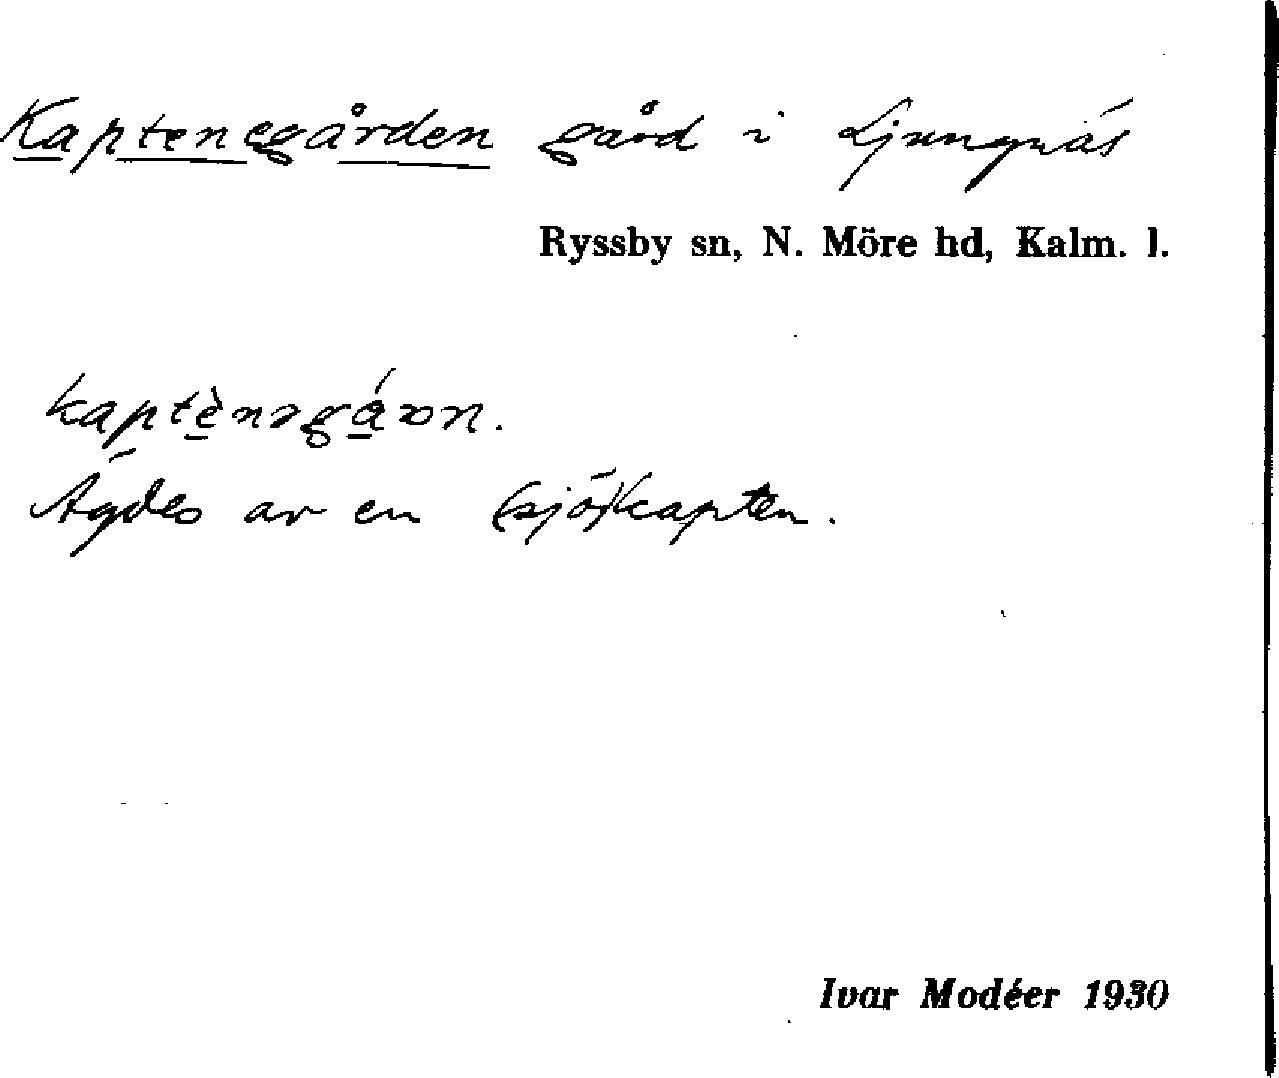 Kaptenegården gård i Ljungnäs
Ryssby sn, N. Möre hd, Kalm. l.
Ägdes av en (sjö)kapten.
Ivar Modéer 1930